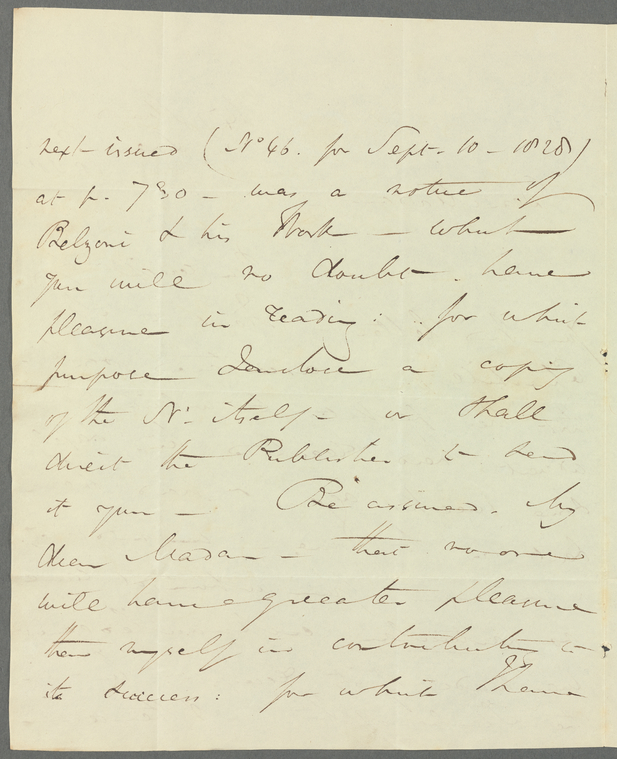 next issued (No 46. for Sept. 10 - 1828)
at p. 730 - was a notice of
Belzoni & his Work - which
you will no doubt have
pleasure in reading: for which
purpose I enclose a copy
of the No. itself - or shall
direct the Publisher to send
it you - Be assured, My
dear Madam - that no one
will have greater pleasure
than myself in contributing to
its success: for which I have